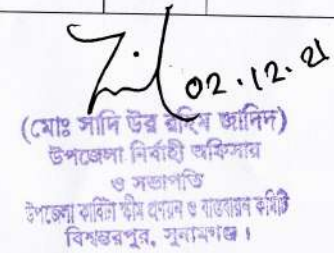 02.12.21
(মোঃ সাদি উর রহিম জাদিদ)
উপজেলা নির্বাহী অফিসার
ও সভাপতি
উপজেলা কাবিটা স্কীম প্রণয়ন ও বাস্তবায়ন কমিটি
বিশ্বম্ভরপুর, সুনামগঞ্জ।